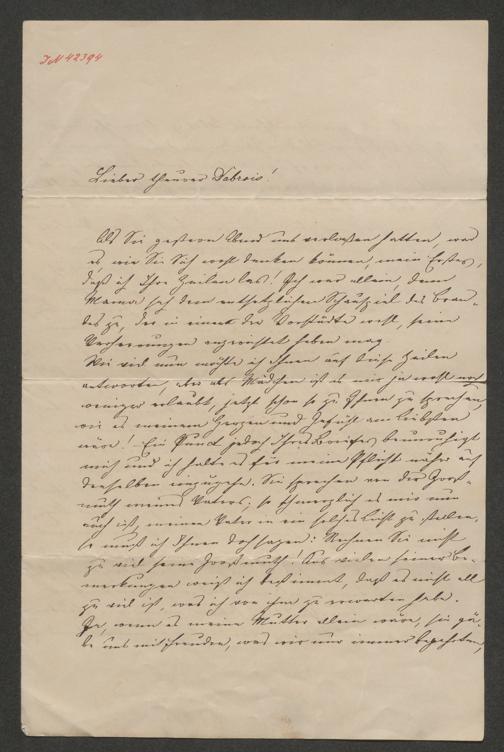 IN 42394
Lieber theurer Dubrois!
Als Sie gestern Abend uns verlassen hatten, war
es wie Sie Sich wohl denken können, mein Erstes,
daß ich Ihre Zeilen las! Ich war allein, denn
Mama sah dem entsetzlichen Schauspiel des Bran-
des zu, der in einer der Vorstädte wohl, seine
Verheerungen angerichtet haben mag.
Wie viel nun möchte ich Ihnen auf diese Zeilen
antworten, aber als Mädchen ist es mir ja wohl noch
weniger erlaubt, jetzt schon so zu Ihnen zu sprechen,
wie es meinem Herzen und Gefühl am liebsten
wäre! Ein Punct jedoch Ihres Briefes beunruhigt
mich und ich halte es für meine Pflicht näher auf
denselben einzugehn. Sie sprechen von der Groß-
muth meines Vaters; so schmerzlich es mir nun
auch ist, meinen Vater in ein solches Licht zu stellen,
so muß ich Ihnen doch sagen: Rechnen Sie nicht
zu viel seine Großmuth! Aus vielen seiner Be-
merkungen weiß ich bestimmt, daß es nicht all
zu viel ist, was ich von ihm zu erwarten habe.
Ja, wenn es meine Mutter allein wäre, sie gä-
be uns mit Freuden, was wir nur immer begehrten,